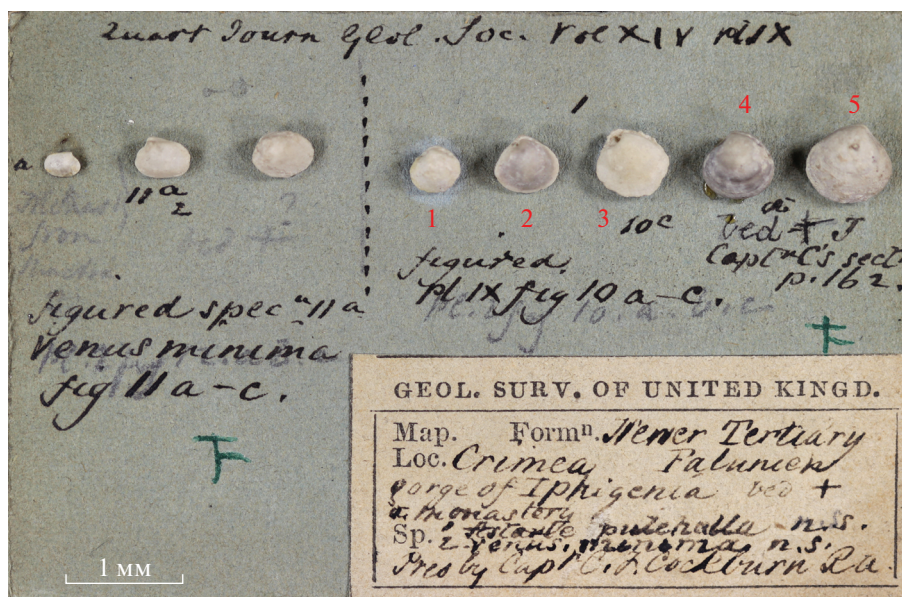 Quart Journ Geol. Soc. Vol XIV pl IX
1
4
5
a
11 a
2
?
1
2
3
10c
from
bed +
a
bed + J
Captn C's sect
p. 162.
figured
Pl IX fig 10 a-c.
figured specn 11 a
Venus minima
fig 11 a-c.
F
F
GEOL. SURV. OF UNITED KINGD.
Map. Formn. Newer Tertiary
Loc. Crimea Falunien
gorge of Iphigenia bed +
& monastery
Sp. 1 Astarte pulchella n.s.
2 Venus minima n.s.
Pres by Capt C. J. Cockburn R.A.
1 мм